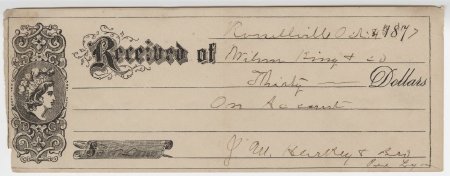 Russellville Oct 1877
Received of Wilson King & co
Thirty Dollars
On Account
J. M. & Bro
Per